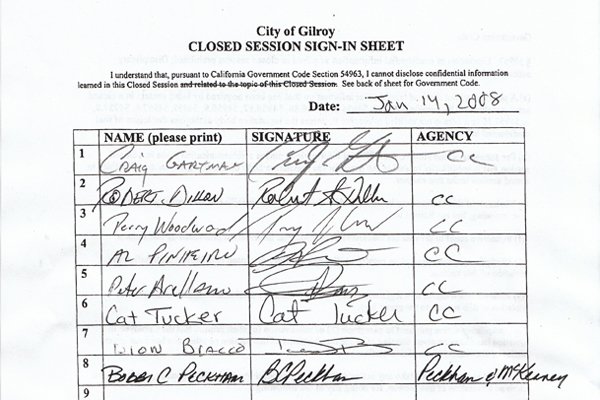 City of Gilroy
CLOSED SESSION SIGN-IN SHEET
I understand that, pursuant to California Government Code Section 54963, I cannot disclose confidential information
learned in this Closed Session and related to the topic of this Closed Session. See back of sheet for Government Code.
Date: Jan 14, 2008
NAME (please print) SIGNATURE AGENCY
1 CRAIG GARTMAN CC
2 ROBERT DILLON Robert Dillon CC
3 Perry Woodward CC
4 AL PINHEIRO CC
5 Peter Arellano CC
6 Cat Tucker Cat Tucker CC
7 DION BRACCO CC
8 BOBBI C PECKHAM BC Peckham Peckham & McKenney
9